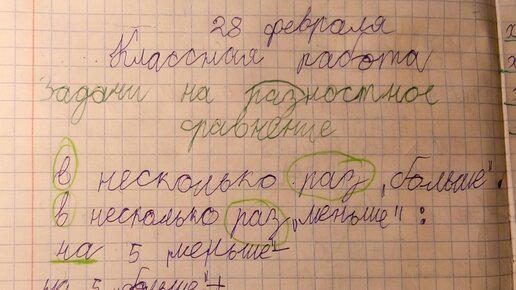 28 февраля
Классная работа
Задачи на разностное
сравнение
в несколько раз „больше" .
в несколько раз „меньше" :
на 5 „меньше" -
на 5 „больше" +